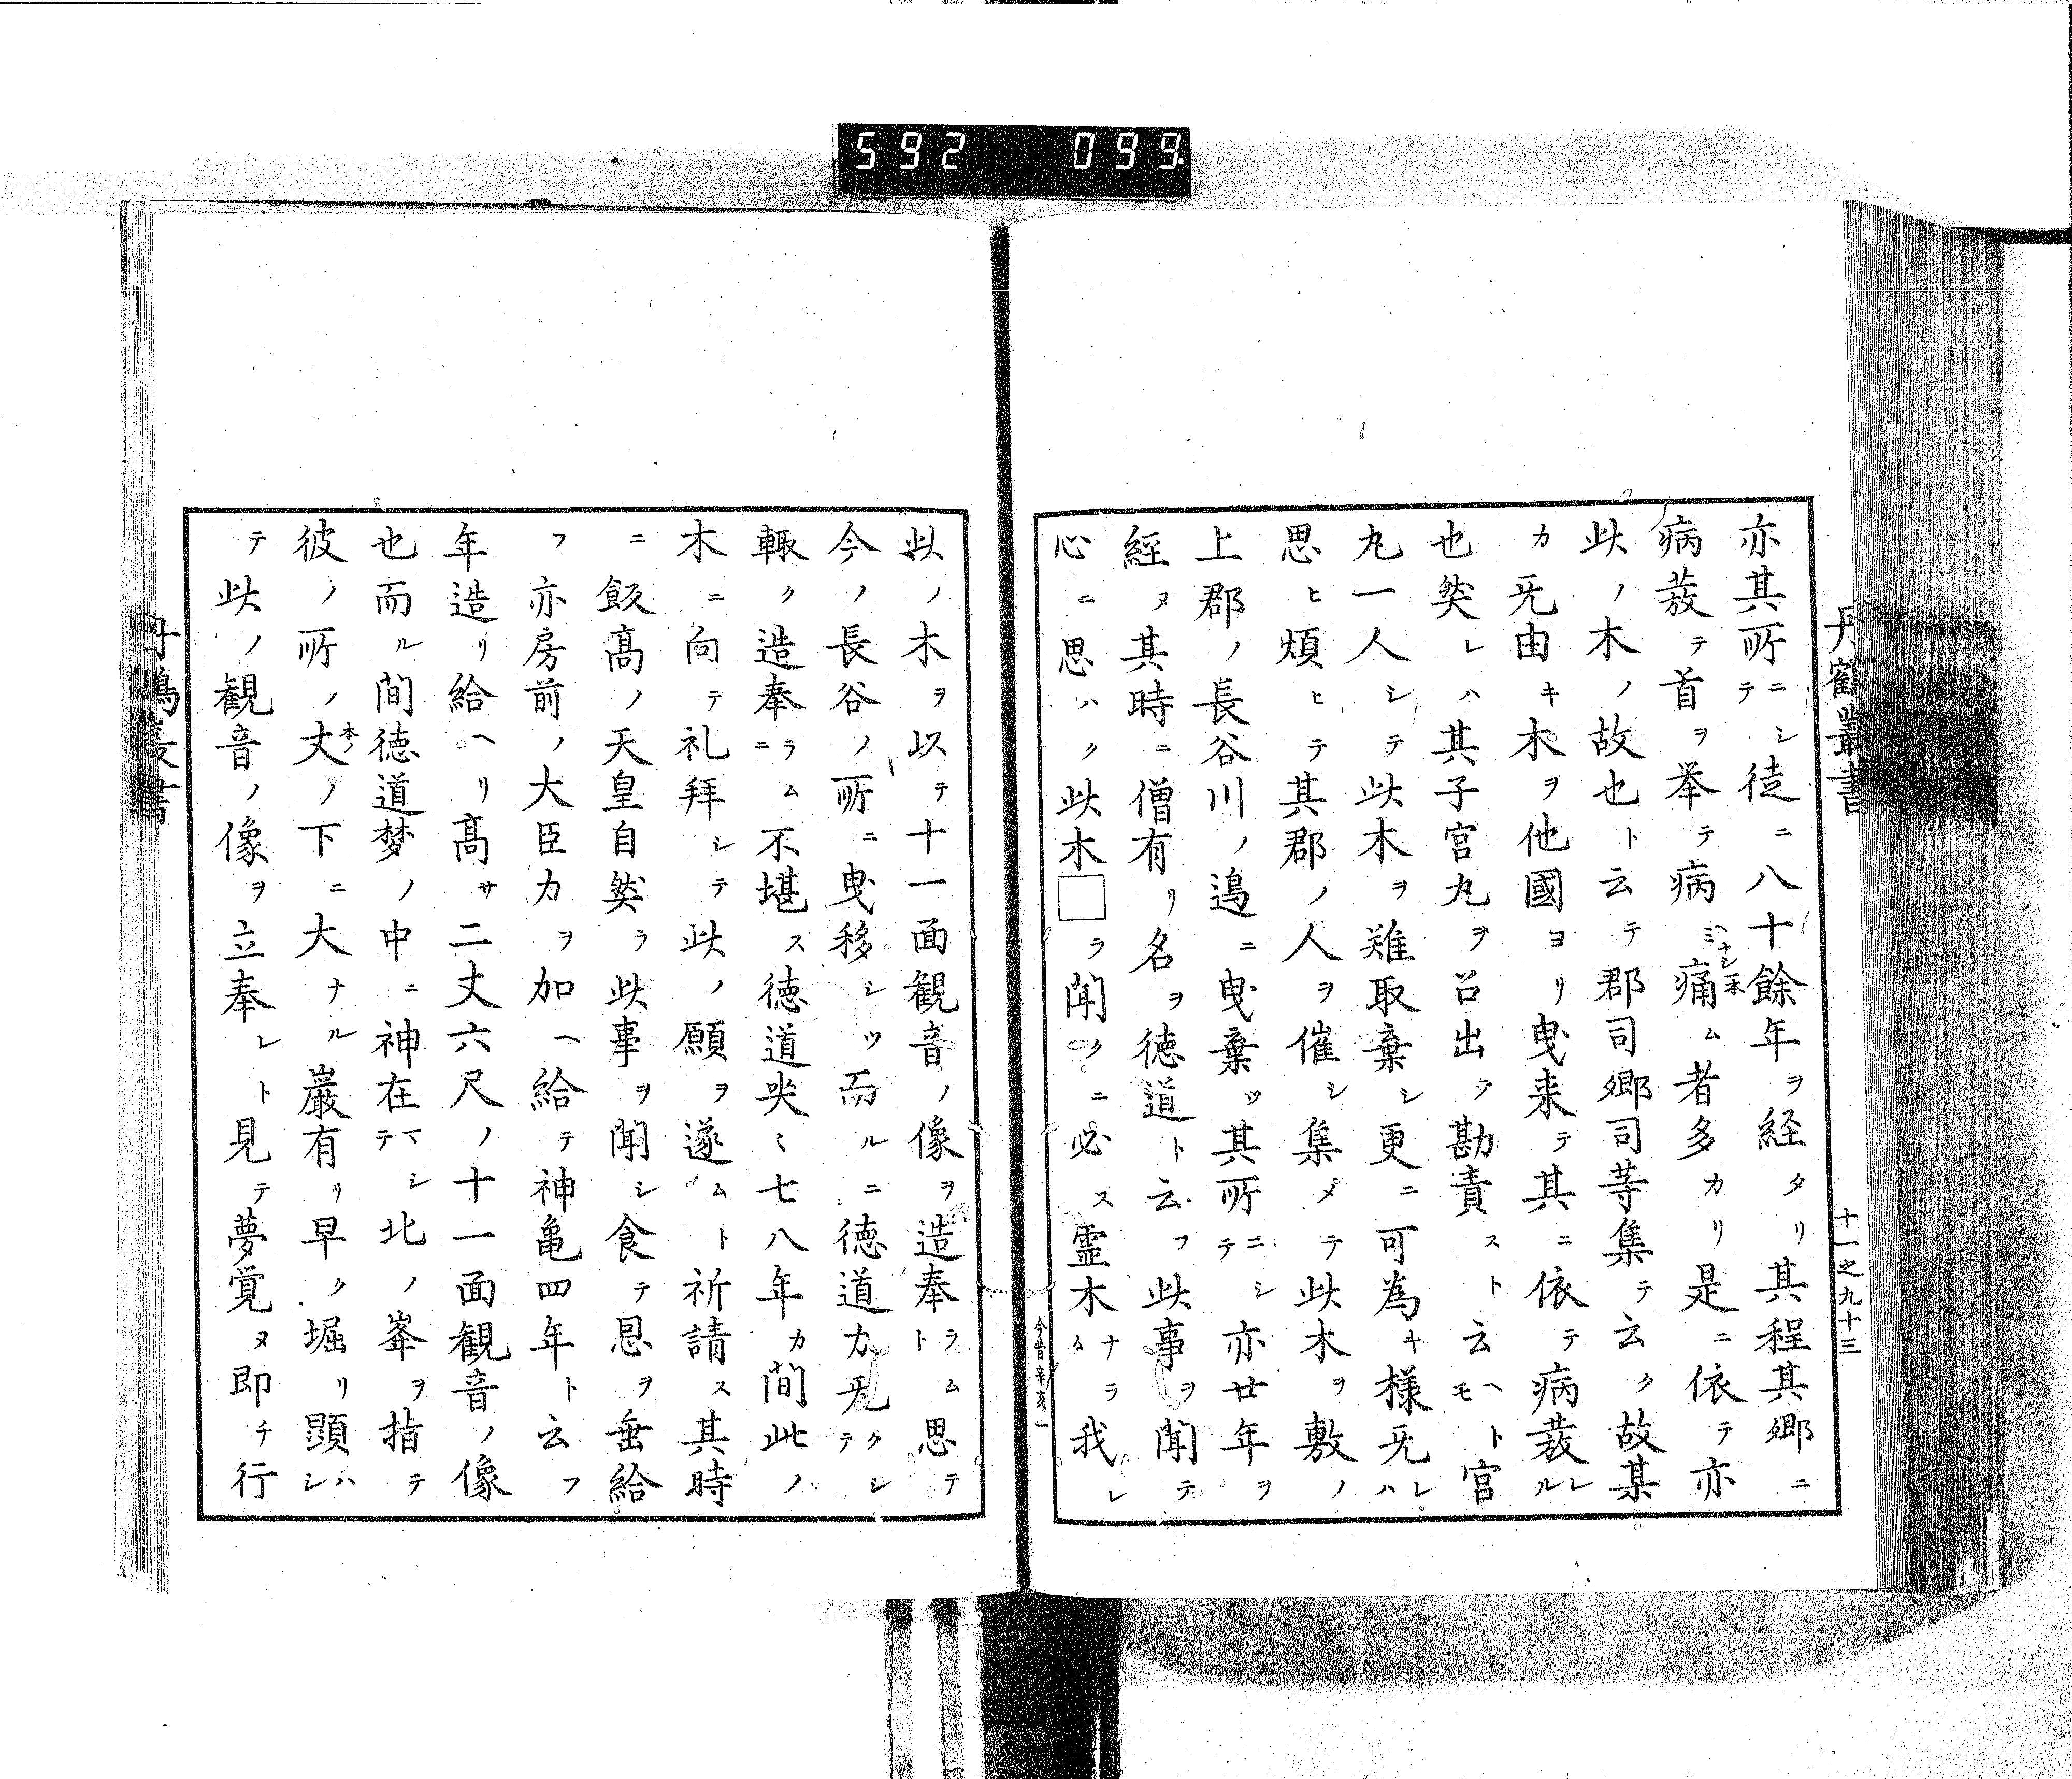 592 099
丹鶴叢書
十一之九十三
亦其所ニシテ徒ニ八十餘年ヲ経タリ其程其郷ニ
病蔉テ首ヲ挙テ病ミ痛ム者多カリ是ニ依テ亦
ヘナシ一本
此ノ木ノ故也ト云テ郡司郷司等集テ云ク故某
カ旡由キ木ヲ他國ヨリ曳来テ其ニ依テ病蔉レル
也然レハ其子宮丸ヲ召出テ勘責スト云ヘトモ宮
丸一人シテ此木ヲ難取棄シ更ニ可為キ様旡レハ
思ヒ煩ヒテ其郡ノ人ヲ催シ集メテ此木ヲ敷ノ
上郡ノ長谷川ノ邉ニ曳棄ツ其所ニシテ亦廿年ヲ
經ヌ其時ニ僧有リ名ヲ徳道ト云フ此事ヲ聞テ
心ニ思ハク此木□ラ聞クニ必ス霊木ナラム我レ
今昔辛亥一
此ノ木ヲ以テ十一面観音ノ像ヲ造奉ラムト思テ
今ノ長谷ノ所ニ曳移シツ而ルニ徳道力旡クシテ
輙ク造奉ラムニ不堪ス徳道哭ミ七八年カ間此ノ
木ニ向テ礼拜シテ此ノ願ヲ遂ムト祈請ス其時
ニ飯髙ノ天皇自然ラ此事ヲ聞シ食テ恩ヲ垂給
フ亦房前ノ大臣力ヲ加ヘ給テ神亀四年ト云フ
年造リ給ヘリ髙サ二丈六尺ノ十一面観音ノ像
也而ル間徳道梦ノ中ニ神在マシテ北ノ峯ヲ指テ
彼ノ所ノ丈ノ下ニ大ナル巌有リ早ク堀リ顕ハシ
本ノ
テ此ノ観音ノ像ヲ立奉レト見テ夢覚ヌ即チ行